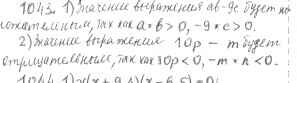 1043. 1) Значение выражения ab - 9c будет по
ложительным, так как a * b > 0, -9 * c > 0.
2) Значение выражения 10p - m будет
отрицательным, так как 10p < 0, -m * n < 0.
1044. 1)